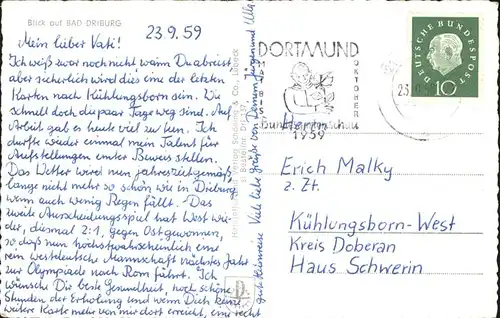 Blick auf BAD DRIBURG
23.9.59
Mein lieber Vati!
Ich weiß zwar noch nicht wann Du abreist,
aber sicherlich wird dies eine der letzten
Karten nach Kühlungsborn sein. Wie
schnell doch die paar Tage weg sind. Auf
Arbeit gab es heute viel zu tun. Ich
durfte wieder einmal mein Talent für
Aufstellungen unter Beweis stellen.
Das Wetter wird nun jahreszeitgemäß,
lange nicht mehr so schön wie in Driburg
wenn auch wenig Regen fällt. Das
zweite Ausscheidungsspiel hat West wie-
der, diesmal 2:1, gegen Ost gewonnen,
so daß nun höchstwahrscheinlich eine
rein westdeutsche Mannschaft nächstes Jahr
zur Olympiade nach Rom fährt. Ich
wünsche Dir beste Gesundheit, noch schöne
Stunden der Erholung und wenn Dich keine
weitere Karte mehr von mir dort erreicht, eine recht
gute Heimreise. Viel liebe Grüße von Deinem Jürgen und Ulla
Schöning & Co., Lübeck
DORTMUND
OKTOBER
1959
DEUTSCHE BUNDESPOST
10
Herrn
Erich Malky
z. Zt.
Kühlungsborn-West
Kreis Doberan
Haus Schwerin